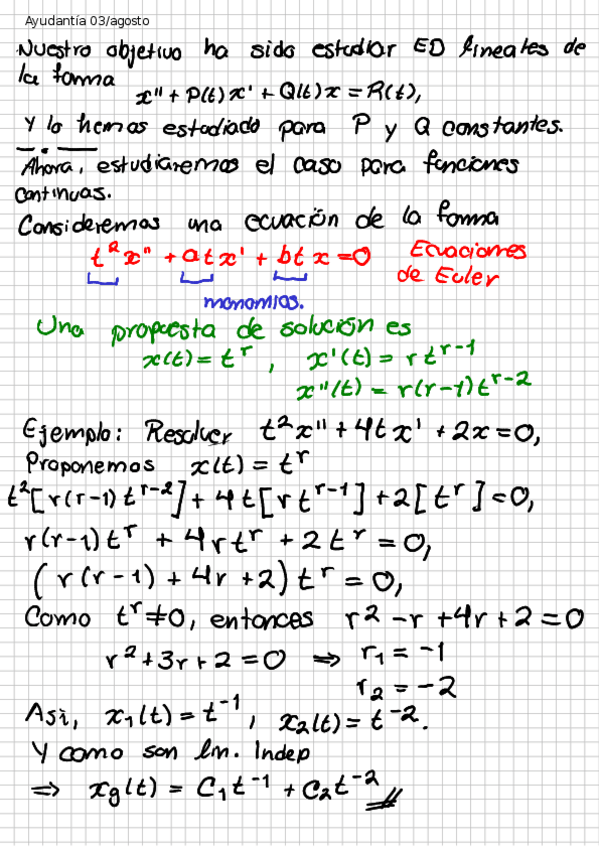 Ayudantía 03/agosto
Nuestro objetivo ha sido estudiar ED lineales de
la forma
x'' + P(t)x' + Q(t)x = R(t),
Y lo hemos estudiado para P y Q constantes.
Ahora, estudiaremos el caso para funciones
continuas.
Consideremos una ecuación de la forma
t²x'' + atx' + btx = 0 Ecuaciones
de Euler
monomios.
Una propuesta de solución es
x(t) = t^r, x'(t) = rt^{r-1}
x''(t) = r(r-1)t^{r-2}
Ejemplo: Resolver t²x'' + 4tx' + 2x = 0,
Proponemos x(t) = t^r
t²[r(r-1)t^{r-2}] + 4t[rt^{r-1}] + 2[t^r] = 0,
r(r-1)t^r + 4rt^r + 2t^r = 0,
(r(r-1) + 4r + 2)t^r = 0,
Como t^r ≠ 0, entonces r² - r + 4r + 2 = 0
r² + 3r + 2 = 0 ⇒ r₁ = -1
r₂ = -2
Asi, x₁(t) = t^{-1}, x₂(t) = t^{-2}.
Y como son lin. Indep
⇒ xg(t) = C₁t^{-1} + C₂t^{-2}